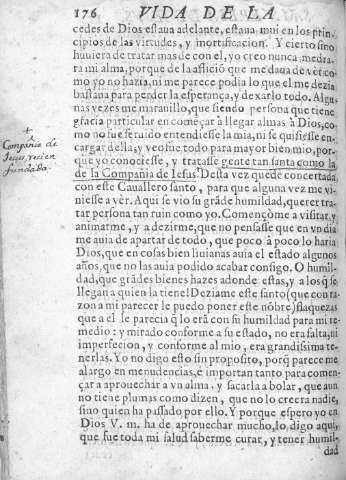 176 VIDA DE LA
cedes de Dios estaua adelante, estaua mui en los prin-
cipios de las virtudes, y mortificacion. Y cierto sino
huuiera de tratar mas de con el, yo creo nunca medra-
ra mi alma, porque de la aflició que me daua de ver co-
mo yo no hazia, ni me parece podia lo que el me dezia
bastaua para perder la esperança, y dexarlo todo. Algu-
nas vezes me marauillo, que siendo persona que tiene
gracia particular en començar à llegar almas à Dios, co-
mo no fue seruido entendiesse la mia, ni se quisiesse en-
cargar della; y veo fue todo para mayor bien mio, por-
que yo conociesse, y tratasse gente tan santa como la
de la Compañia de Iesus. Desta vez quede concertada
con este Cauallero santo, para que alguna vez me vi-
niesse a vèr. Aqui se vio su grãde humildad, querer tra-
tar persona tan ruin como yo. Començòme a visitar, y
animarme, y a dezirme, que no pensasse que en vn dia
me auia de apartar de todo, que poco à poco lo haria
Dios, que en cosas bien liuianas auia el estado algunos
años, que no las auia podido acabar consigo. O humil-
dad, que grãdes bienes hazes adonde estas, y a los q̃ se
llegan a quien la tiene! Deziame este santo (que con ra-
zon a mi parecer le puedo poner este nõbre) flaquezas
que a el le parecia q̃ lo erã con su humildad para mi re-
medio: y mirado conforme a su estado, no era falta, ni
imperfecion, y conforme al mio, era grandissima te-
nerlas. Yo no digo esto sin proposito, porq̃ parece me
alargo en menudencias, è importan tanto para comen-
çar a aprouechar a vn alma, y sacarla a bolar, que aun
no tiene plumas como dizen, que no lo creerà nadie,
sino quien ha passado por ello. Y porque espero yo en
Dios V. m. ha de aprouechar mucho, lo digo aqui,
que fue toda mi salud saberme curar, y tener humil-
dad
+
Compañia de
Jesus, recien
fundaba.